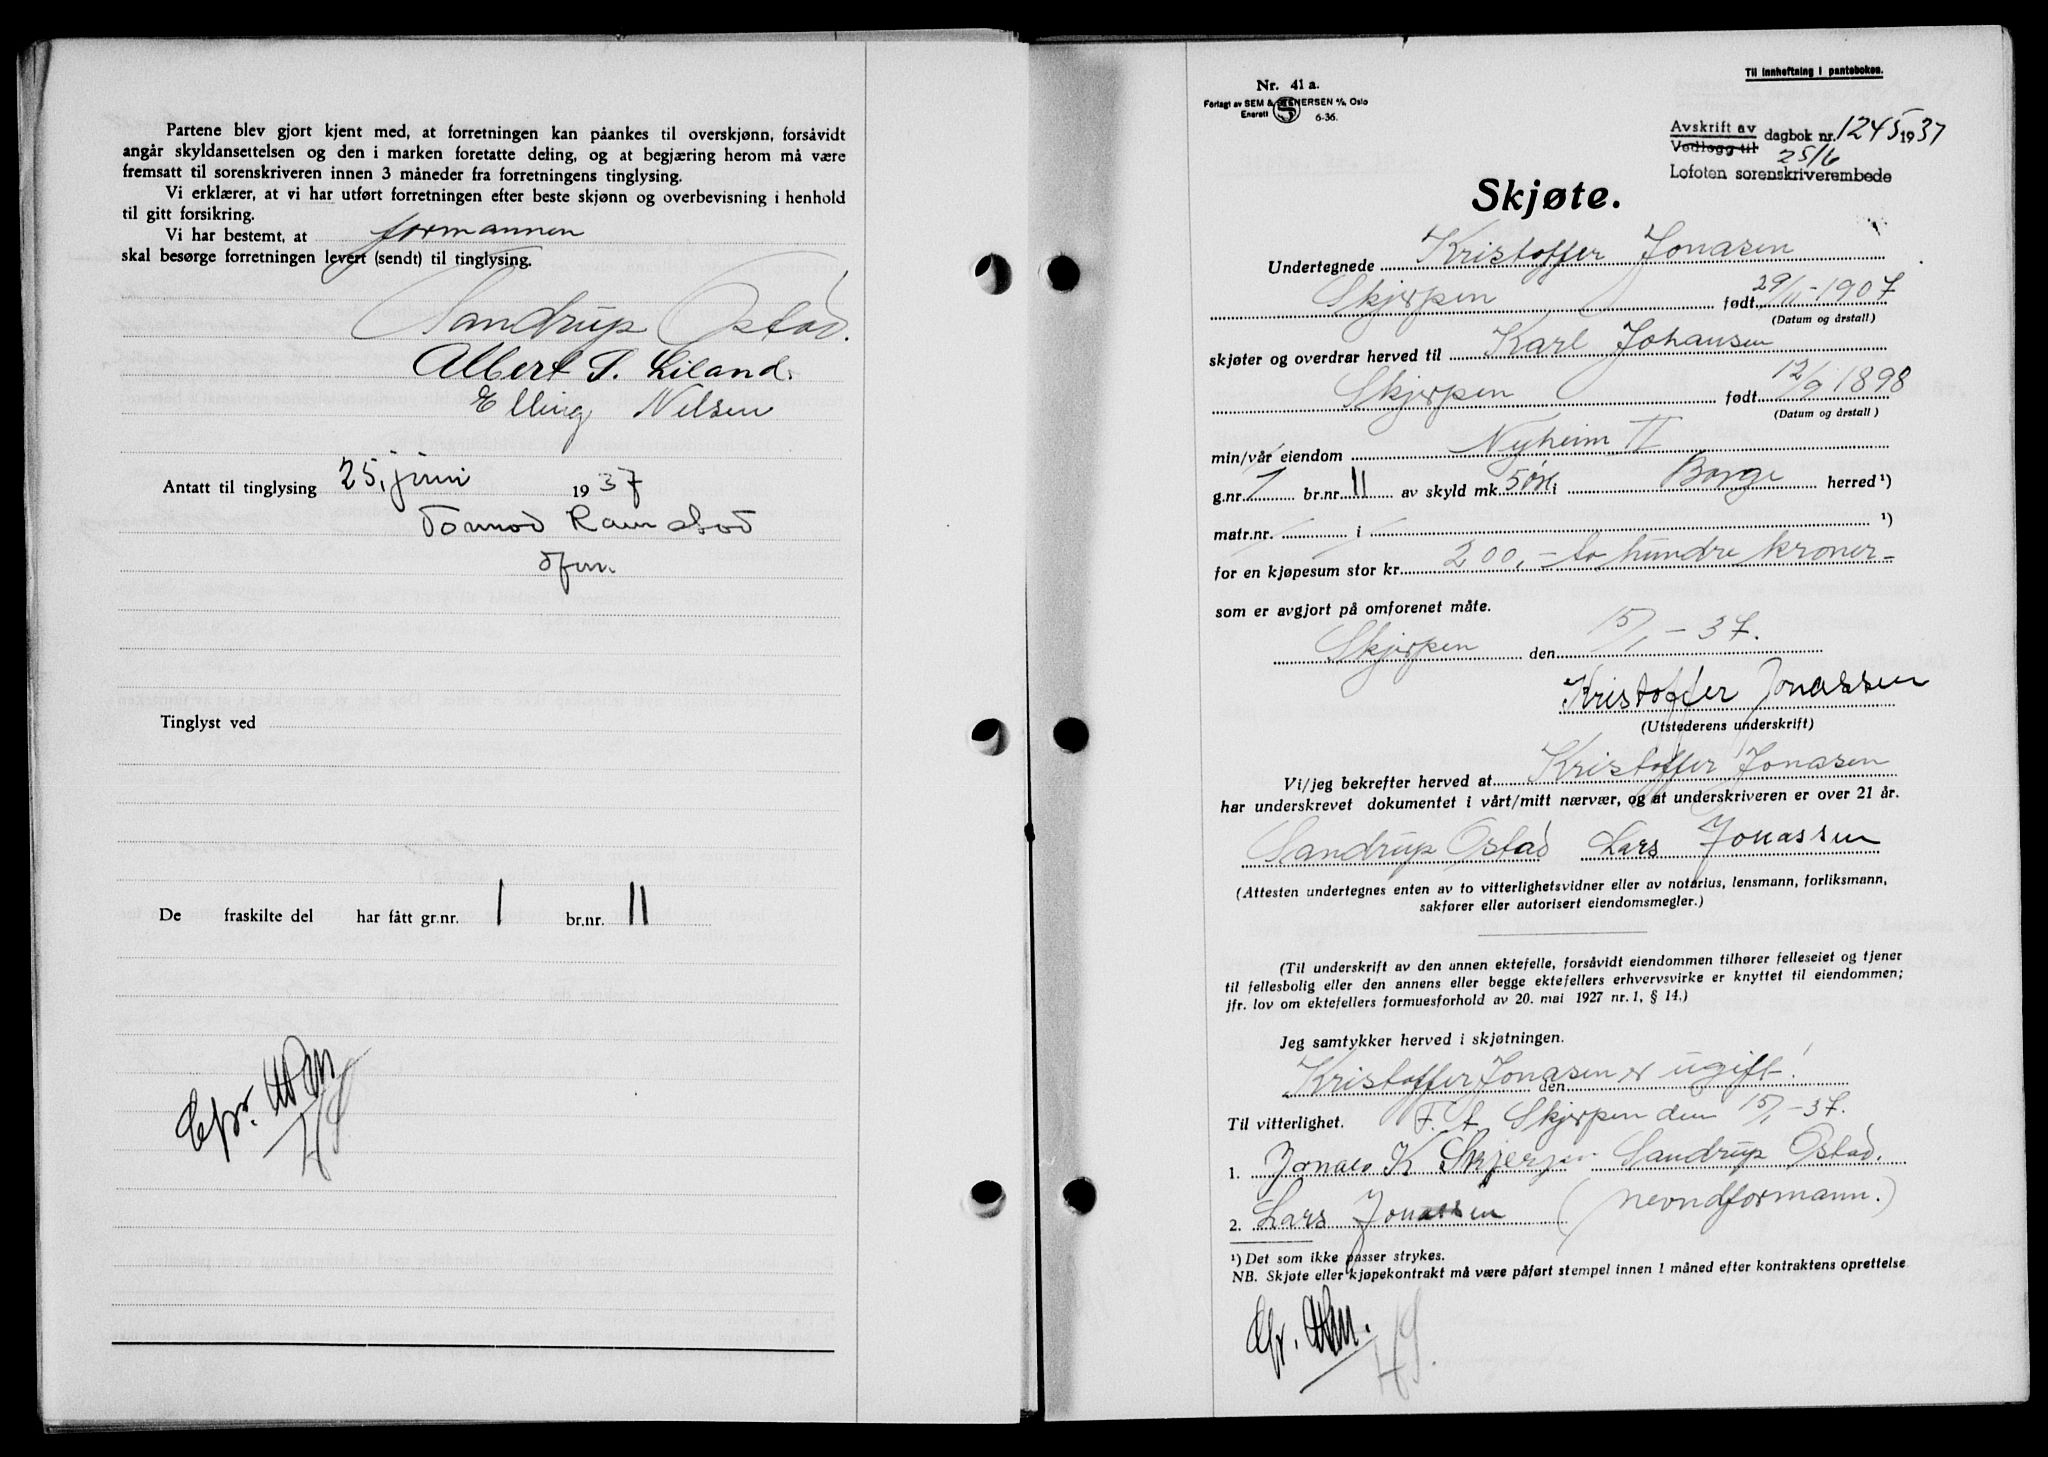 Partene blev gjort kjent med, at forretningen kan påankes til overskjønn, forsåvidt
angår skyldansettelsen og den i marken foretatte deling, og at begjæring herom må være
fremsatt til sorenskriveren innen 3 måneder fra forretningens tinglysing.
Vi erklærer, at vi har utført forretningen efter beste skjønn og overbevisning i henhold
til gitt forsikring.
Vi har bestemt, at formannen
skal besørge forretningen levert (sendt) til tinglysing.
Sandrup Ostad.
Albert P. Liland.
Elling Nilsen
Antatt til tinglysing 25. juni 1937
Tormod Ramstad
Tinglyst ved
De fraskilte del har fått gr.nr. 1 br.nr. 11
Til innheftning i panteboken.
Nr. 41 a.
Forlagt av SEM & STENERSEN A/S, Oslo
Enerett 6-36.
Avskrift av
Vedlegg til dagbok nr. 1245 1937
25/6
Lofoten sorenskriverembede
Skjøte.
Undertegnede Kristoffer Jonasen
Skjerpen født 29/11-1907
(Datum og årstall)
skjøter og overdrar herved til Karl Johansen
Skjerpen født 12/9 1898
(Datum og årstall)
min/vår eiendom Nyheim II
g.nr. 1 br.nr. 11 av skyld mk. 5 øre i Borge herred ¹)
matr.nr. / i / ¹)
for en kjøpesum stor kr. 200,- to hundre kroner-
som er avgjort på omforenet måte.
Skjerpen den 15/1-37.
Kristoffer Jonassen
(Utstederens underskrift)
Vi/jeg bekrefter herved at Kristoffer Jonasen
har underskrevet dokumentet i vårt/mitt nærvær, og at underskriveren er over 21 år.
Sandrup Ostad Lars Jonassen
(Attesten undertegnes enten av to vitterlighetsvidner eller av notarius, lensmann, forliksmann,
sakfører eller autorisert eiendomsmegler.)
(Til underskrift av den annen ektefelle, forsåvidt eiendommen tilhører felleseiet og tjener
til fellesbolig eller den annens eller begge ektefellers erhvervsvirke er knyttet til eiendommen;
jfr. lov om ektefellers formuesforhold av 20. mai 1927 nr. 1, § 14.)
Jeg samtykker herved i skjøtningen.
Kristoffer Jonasen er ugift!
den
Til vitterlighet. F. t. Skjerpen den 15/1-37.
1. Jonas K Skjerpen Sandrup Ostad.
2. Lars Jonassen (nevndformann.)
¹) Det som ikke passer strykes.
NB. Skjøte eller kjøpekontrakt må være påført stempel innen 1 måned efter kontraktens oprettelse